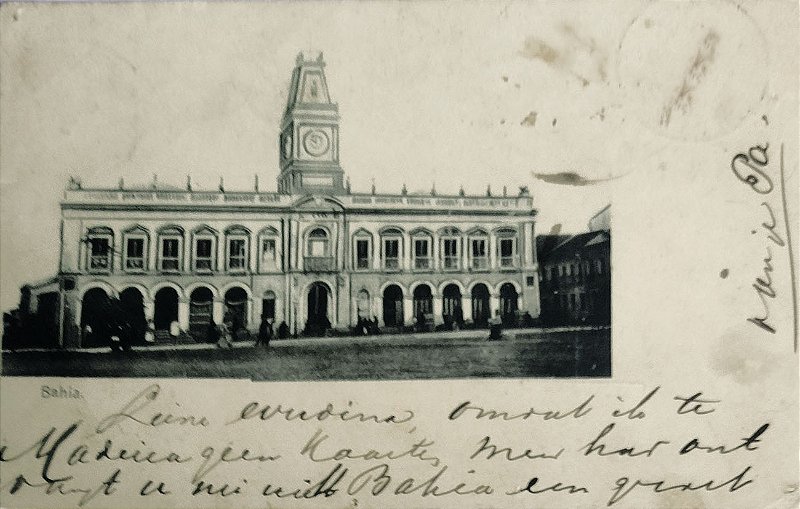 Bahia.
Lieve omdat ik te
Madeira geen Kaarten meer had ont
vangt u nu uit Bahia een groet
van je Pa.